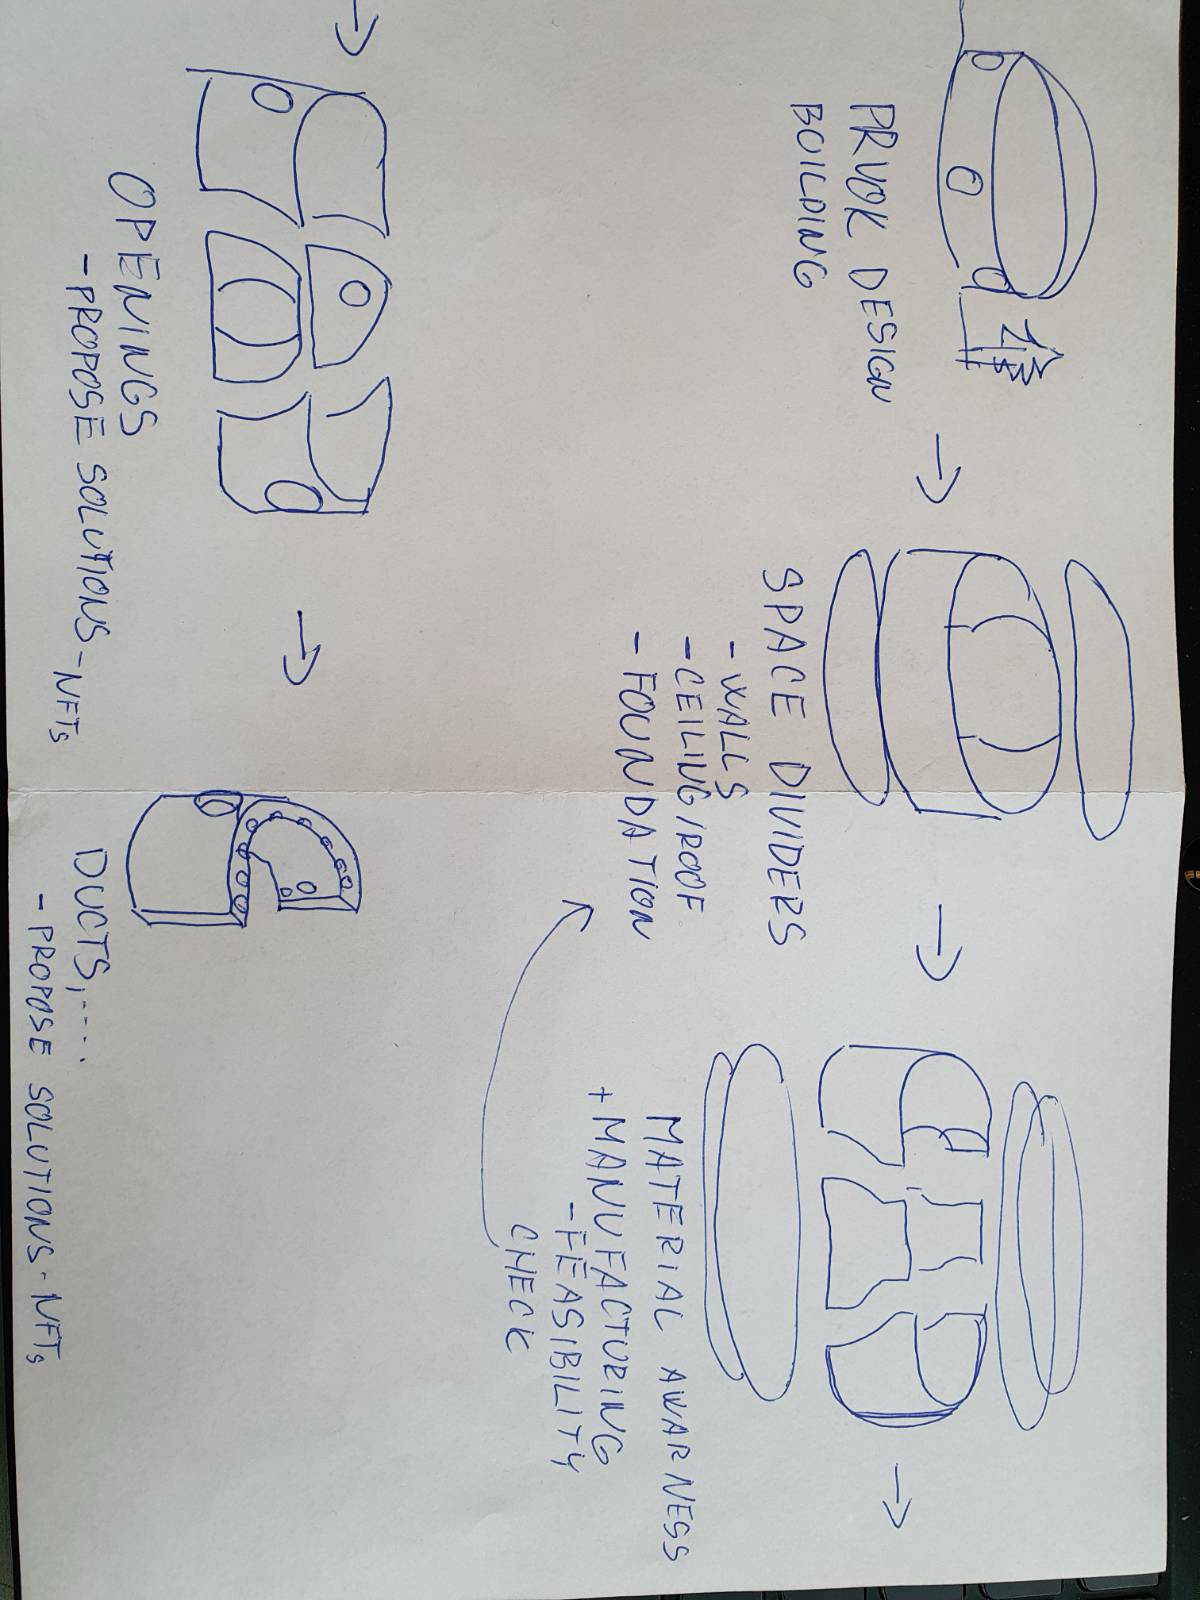 PRVOK DESIGN
BUILDING
SPACE DIVIDERS
- WALLS
- CEILING/ROOF
- FOUNDATION
MATERIAL AWARNESS
+ MANUFACTURING
- FEASIBILITY
CHECK
OPENINGS
- PROPOSE SOLUTIONS - NFTs
DUCTS,....
- PROPOSE SOLUTIONS - NFTs